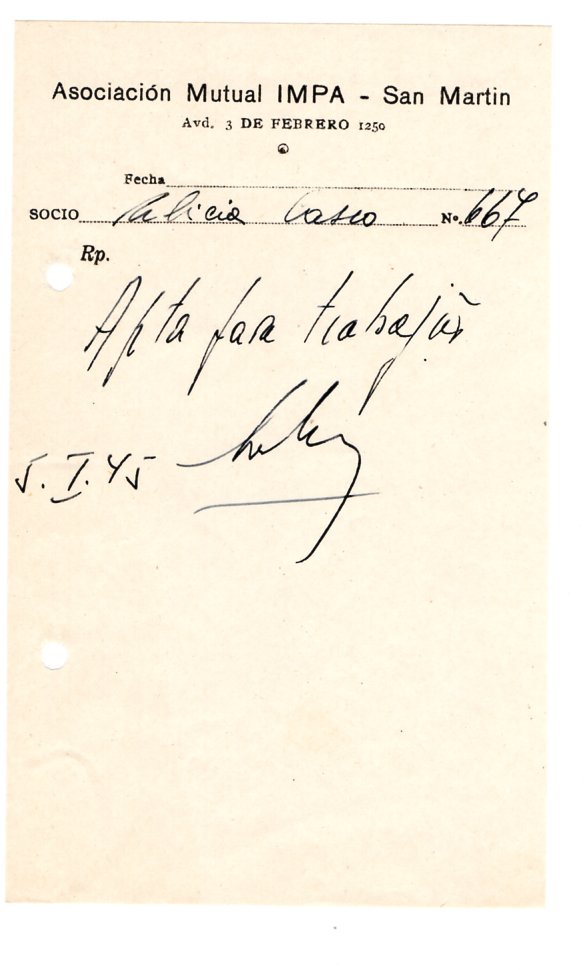 Asociación Mutual IMPA - San Martin
Avd. 3 DE FEBRERO 1250
Fecha
SOCIO Alicia Casco N°. 667
Rp.
Apta para trabajar
5.I.45